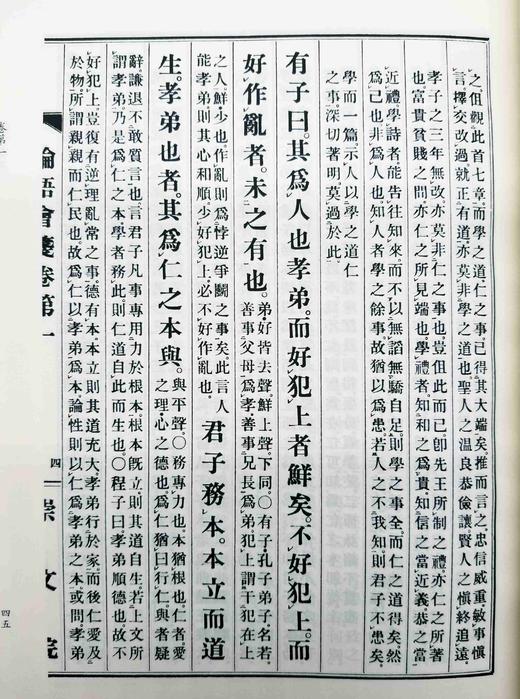 之。但觀此首七章。而學之道仁之事。已得其大端矣。推而言之。忠信威重敏事愼
言。擇交改過就正有道。亦莫非學之道也。聖人之温良恭儉讓。賢人之愼終追遠。
孝子之三年無改。亦莫非仁之事也。豈但此而已。卽先王所制之禮。亦仁之所著
也。富貴貧賤之間。亦仁之所見端也。學禮者。知和之爲貴。知信之當近義恭之當
近禮。學詩者。能告往知來。而不以無諂無驕自足。則學之事全而仁之道得矣。然
爲己也。非爲人也。知人者學之餘事。故猶以爲患。若人之不我知。則君子不患矣。
學而一篇。示人以學之道仁
之事。深切著明。莫過於此。
有子曰。其爲人也孝弟。而好犯上者鮮矣。不好犯上。而
好作亂者。未之有也。
弟好皆去聲。鮮上聲。下同。○有子孔子弟子。名若。
善事父母爲孝。善事兄長爲弟。犯上謂干犯在上
之人。鮮少也。作亂則爲悖逆爭鬭之事矣。此言人
能孝弟則其心和順。少好犯上。必不好作亂也。
君子務本。本立而道
生。孝弟也者。其爲仁之本與。
與平聲。○務專力也。本猶根也。仁者愛
之理。心之德也。爲仁猶曰行仁。與者疑
辭。謙退不敢質言也。言君子凡事專用力於根本。根本既立則其道自生。若上文所
謂孝弟。乃是爲仁之本。學者務此。則仁道自此而生也。○程子曰孝弟順德也。故不
好犯上。豈復有逆理亂常之事。德有本。本立則其道充大。孝弟行於家。而後仁愛及
於物。所謂親親而仁民也。故爲仁以孝弟爲本。論性則以仁爲孝弟之本。或問孝弟
論語會箋卷第一
四
崇文院
卷第一
四五